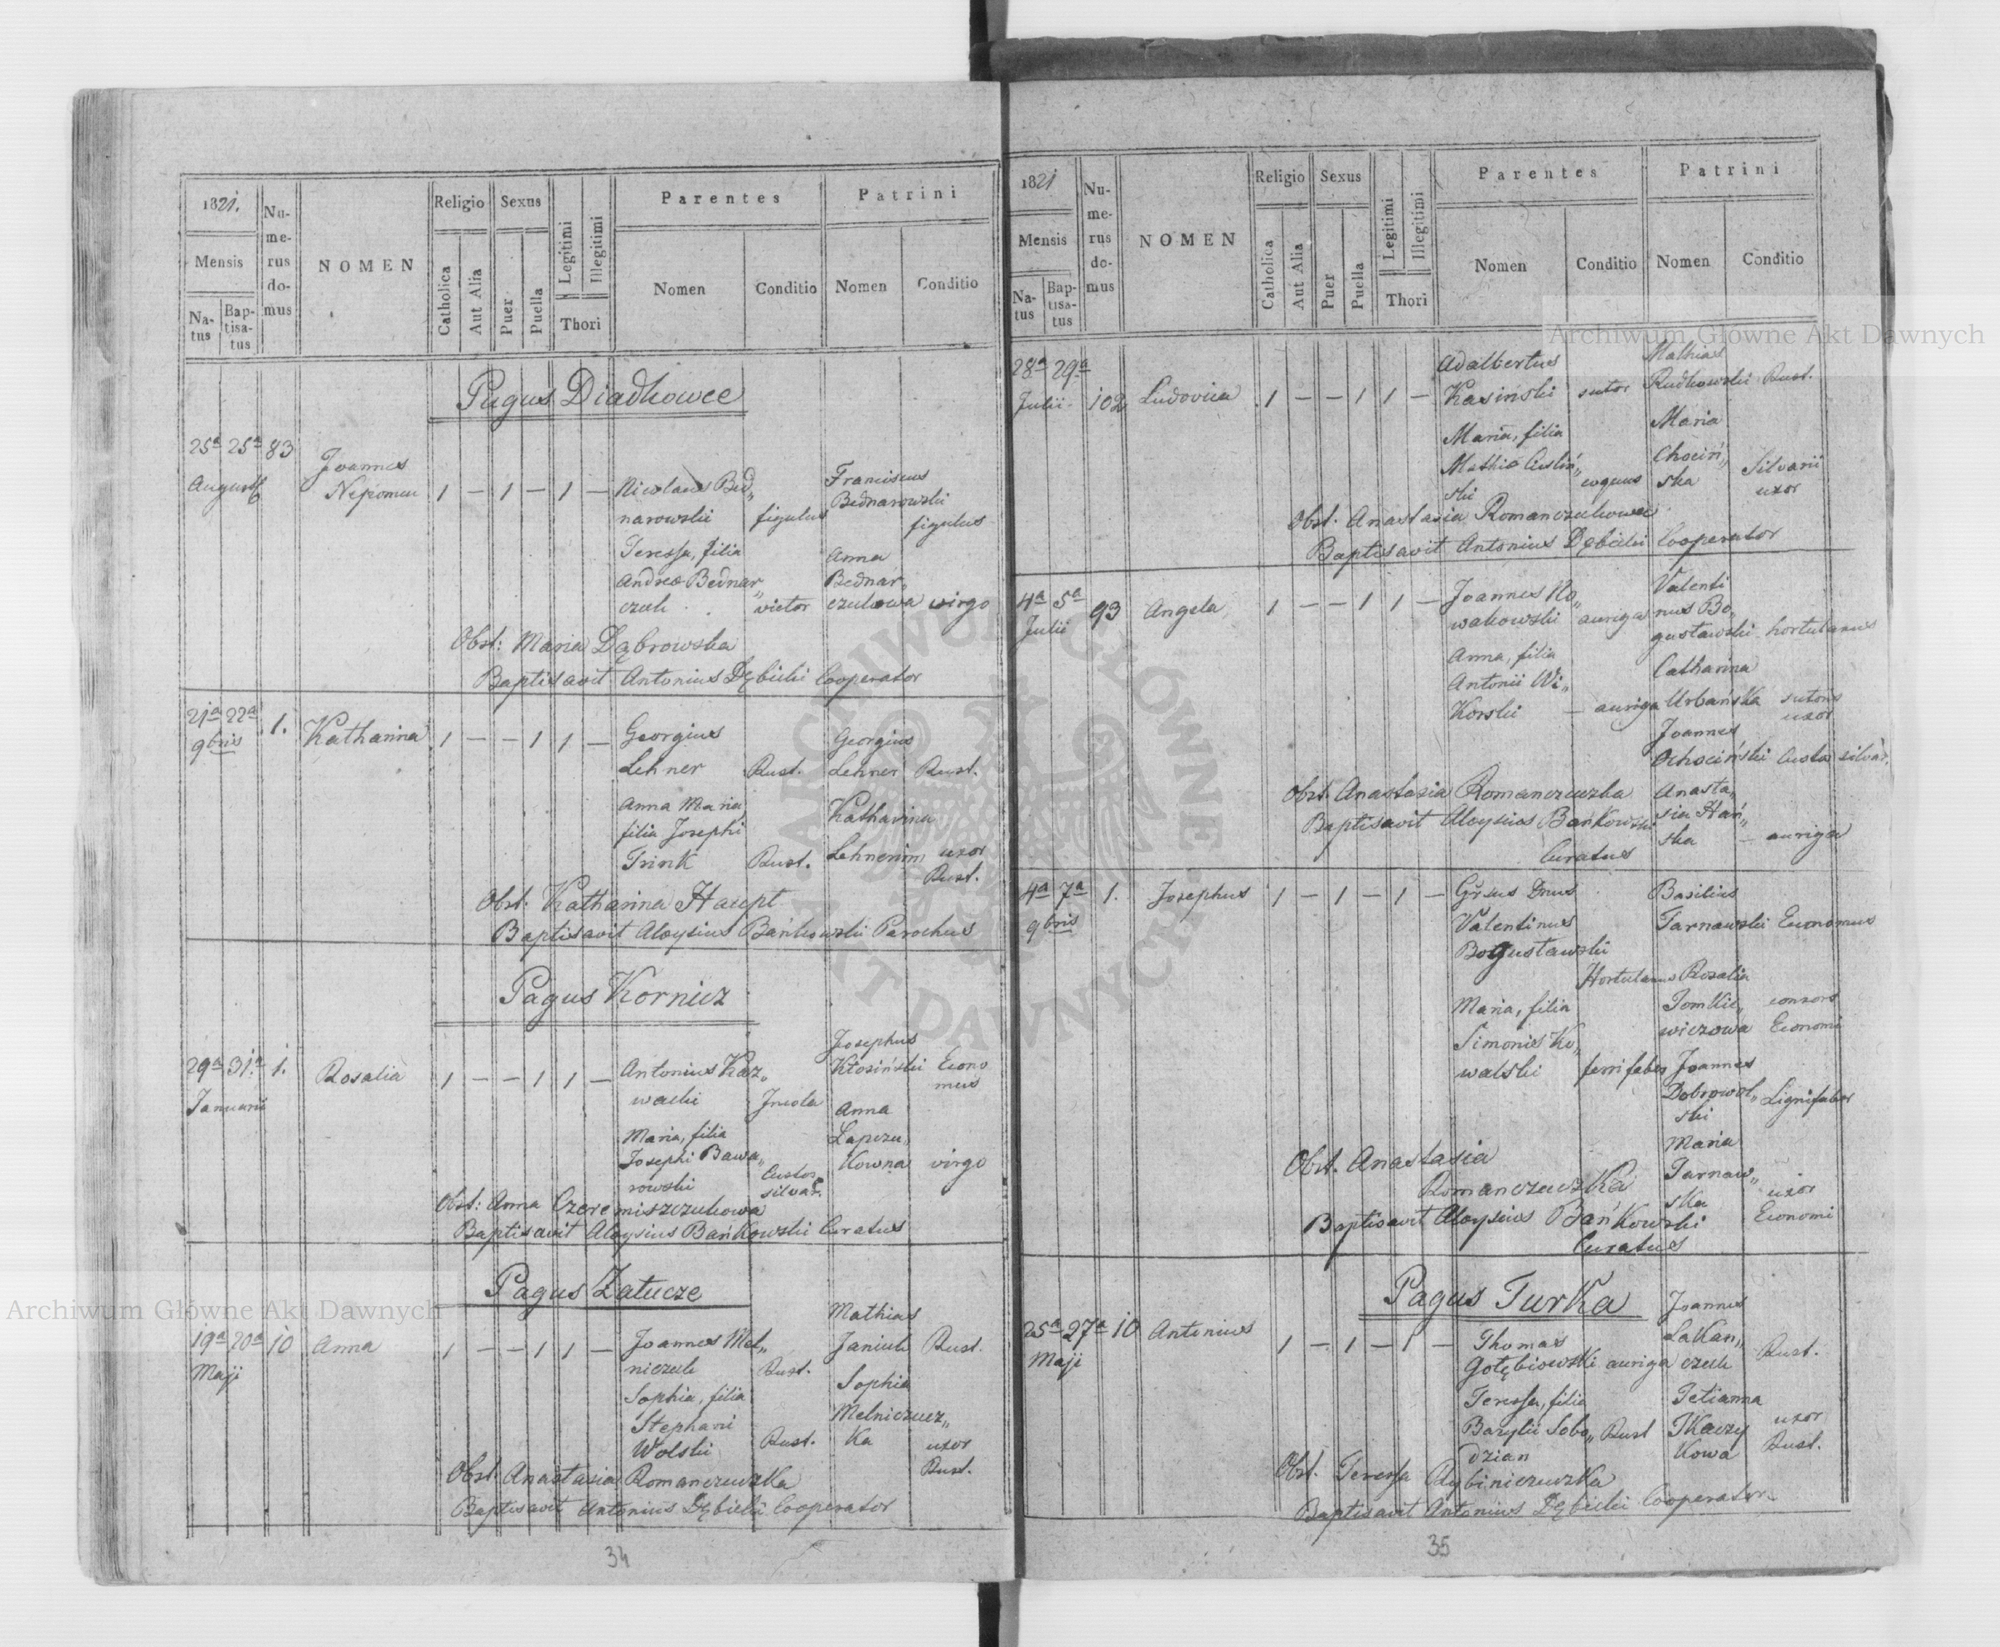 1821.
Mensis
Na-
tus
Bap-
tisa-
tus
Nu-
me-
rus
do-
mus
NOMEN
Religio
Catholica
Aut Alia
Sexus
Puer
Puella
Legitimi
Illegitimi
Thori
Parentes
Nomen
Conditio
Patrini
Nomen
Conditio
Pagus Diadkowce
25ª 25ª 83
Augusti
Joannes
Nepomu
1 — 1 — 1 —
Nicolaus Bed„
narowski figulus
Teressa, filia
Andreæ Bednar„
czuk victor
Franciscus
Bednarowski
figulus
Anna
Bednar„
czukowa virgo
Obst: Maria Dąbrowska
Baptisavit Antonius Dębicki Cooperator
21ª 22ª
9bris
1.
Katharina
1 — — 1 1 —
Georgius
Lehner Rust.
Anna Maria
filia Josephi
Trink Rust.
Georgius
Lehner Rust.
Katharina
Lehnerin uxor
Rust.
Obst. Katharina Haupt
Baptisavit Aloysius Bańkowski Parochus
Pagus Kornicz
29ª 31ª 1.
Januarii
Rosalia
1 — — 1 1 —
Antonius Kaz„
wacki Incola
Maria, filia
Josephi Bawa„
rowski Custos
silvar.
Josephus
Kłosiński Econo
mus
Anna
Lapczu„
kowna virgo
Obst: Anna Czeremiszczukowa
Baptisavit Aloysius Bańkowski Curatus
Pagus Załucze
19ª 20ª 10
Maji
Anna
1 — — 1 1 —
Joannes Mel„
niczuk Rust.
Sophia, filia
Stephani
Wolski Rust.
Mathias
Janiuk Rust.
Sophia
Melniczucz„
ka uxor
Rust.
Obst. Anastasia Romanczuczka
Baptisavit Antonius Dębicki Cooperator
34
1821
Mensis
Na-
tus
Bap-
tisa-
tus
Nu-
me-
rus
do-
mus
NOMEN
Religio
Catholica
Aut Alia
Sexus
Puer
Puella
Legitimi
Illegitimi
Thori
Parentes
Nomen
Conditio
Patrini
Nomen
Conditio
28ª 29ª
Julii
102
Ludovica
1 — — 1 1 —
Adalbertus
Kasinski sutor
Maria, filia
Mathiæ
ski
Mathias
Rudkowski Rust.
Maria
Chociń„
ska Silvarii
uxor
Obst. Anastasia Romanczukowa
Baptisavit Antonius Dębicki Cooperator
4ª 5ª
Julii
93
Angela
1 — — 1 1 —
Joannes No„
wakowski auriga
Anna, filia
Antonii Wi„
korski — auriga
Valenti
nus Bo„
gustawski hortulanus
Catharina
Urbańska sutoris
uxor
Joannes
Ochociński Custos silvar.
Anasta„
sia Hań„
ska — auriga
Obst. Anastasia Romanczuczka
Baptisavit Aloysius Bańkowski
Curatus
4ª 7ª
9bris
1.
Josephus
1 — 1 — 1 —
Grsus Dnus
Valentinus
Bogustawski
Hortulanus
Maria, filia
Simonis Ko„
walski ferrifaber
Basilius
Tarnawski Economus
Rosalia
Tomkie„
wiczowa consors
Economi
Joannes
Dobrowol„
ski Lignifaber
Maria
Tarnaw„
ska uxor
Economi
Obst. Anastasia
Romanczuczka
Baptisavit Aloysius Bańkowski
Curatus
Pagus Turka
25ª 27ª 10
Maji
Antonius
1 — 1 — 1 —
Thomas
Gołębiowski auriga
Teressa, filia
Bazylii Sobo„ Rust
dzian
Joannes
Lakan„
czuk Rust.
Tetianna
Tkaczy
kowa uxor
Rust.
Obst. Teressa Rybiniczuczka
Baptisavit Antonius Dębicki Cooperator
35
Archiwum Główne Akt Dawnych
Archiwum Główne Akt Dawnych
ARCHIWUM GŁÓWNE AKT DAWNYCH